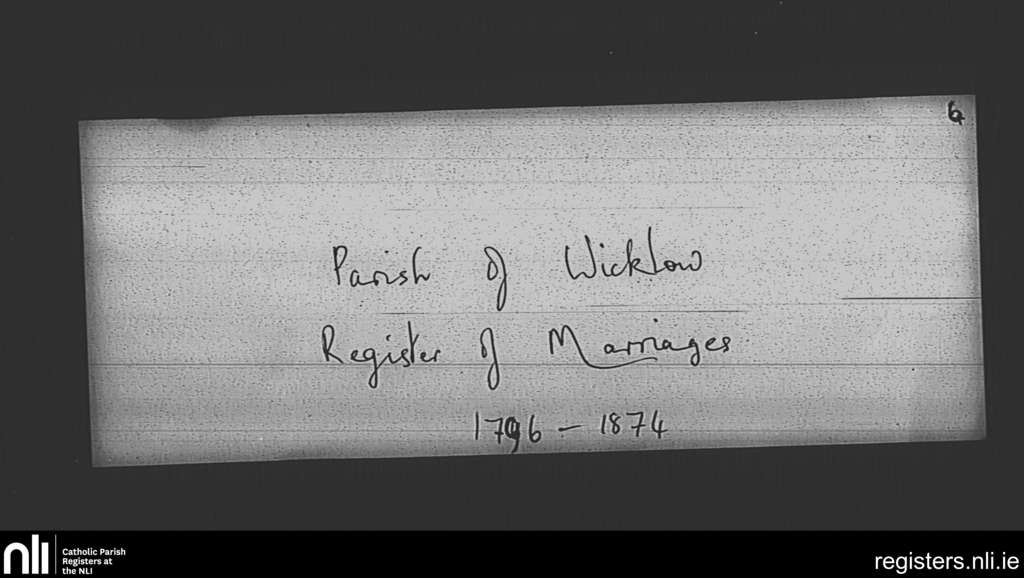 6
Parish of Wicklow
Register of Marriages
1796 - 1874
nli
Catholic Parish
Registers at
the NLI
registers.nli.ie